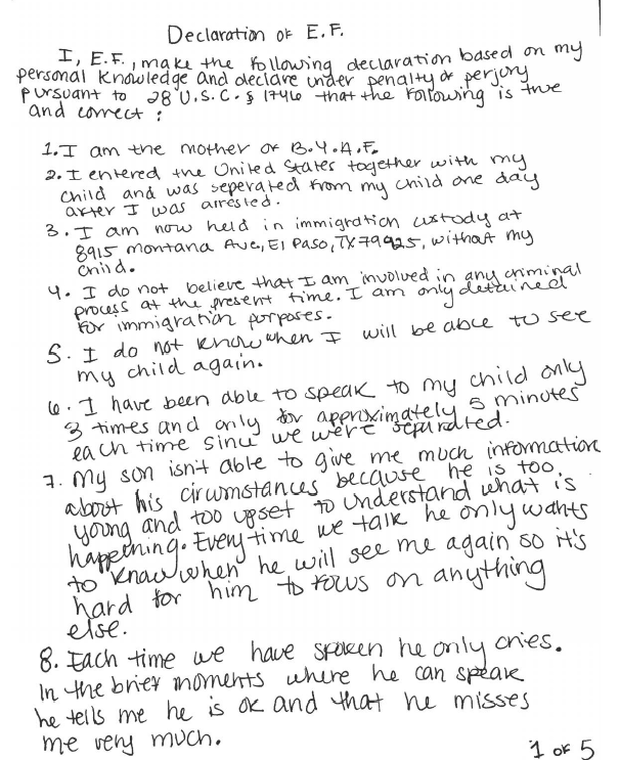 Declaration of E.F.
I, E.F., make the following declaration based on my
personal knowledge and declare under penalty of perjury
pursuant to 28 U.S.C. § 1746 that the following is true
and correct:
1. I am the mother of B.Y.A.F.
2. I entered the United States together with my
child and was seperated from my child one day
after I was arrested.
3. I am now held in immigration custody at
8915 Montana Ave, El Paso, TX 79925, without my
child.
4. I do not believe that I am involved in any criminal
process at the present time. I am only detained
for immigration purposes.
5. I do not know when I will be able to see
my child again.
6. I have been able to speak to my child only
3 times and only for approximately 5 minutes
each time since we were separated.
7. My son isn't able to give me much information
about his circumstances because he is too
young and too upset to understand what is
happening. Every time we talk he only wants
to know when he will see me again so it's
hard for him to focus on anything
else.
8. Each time we have spoken he only cries.
In the brief moments where he can speak
he tells me he is ok and that he misses
me very much.
1 of 5